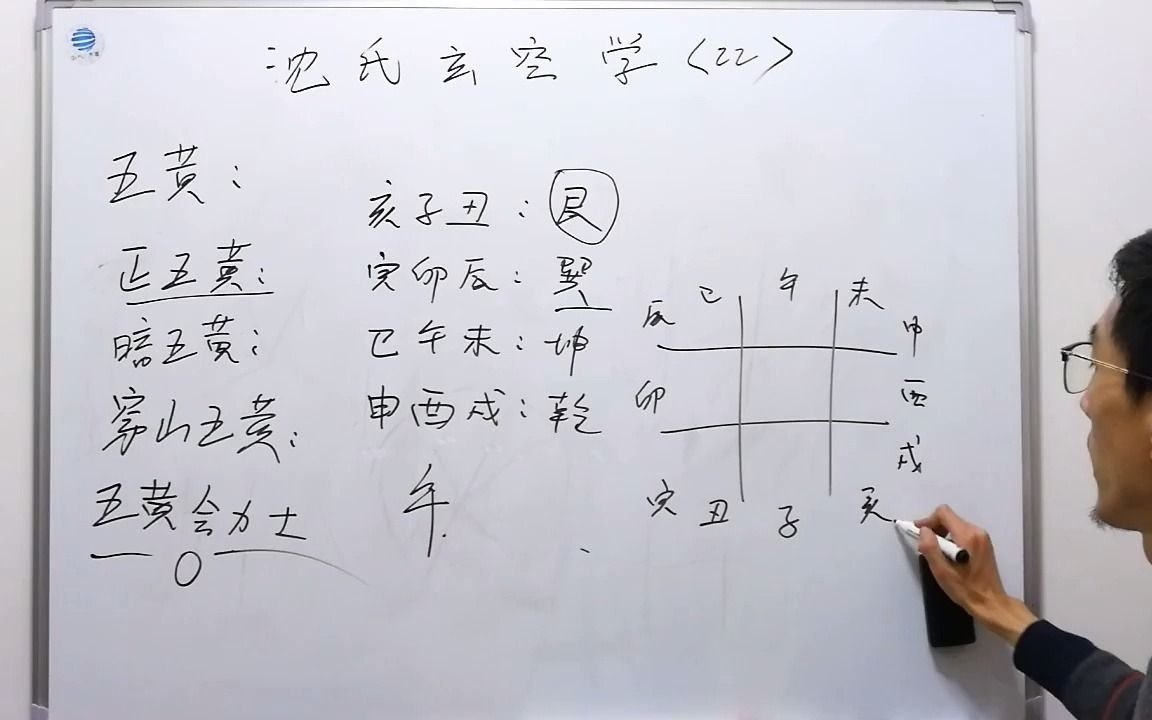 沈氏玄空学〈22〉
五黄：
正五黄：
暗五黄：
穿山五黄：
五黄会力士
亥子丑：艮
寅卯辰：巽
巳午未：坤
申酉戌：乾
年
辰 巳 午 未 申
卯 酉
戌
寅 丑 子 亥